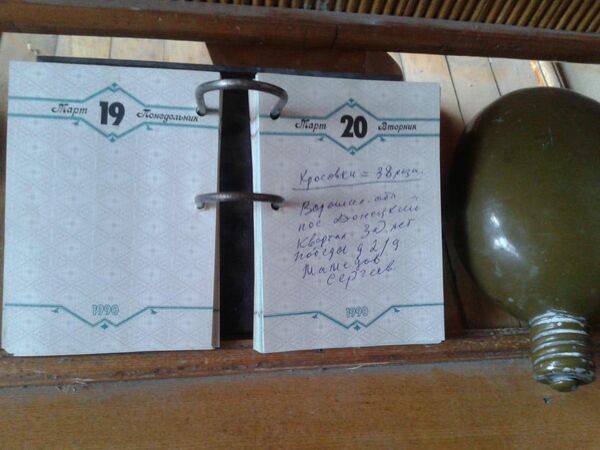 Март 19 Понедельник
1990
Март 20 Вторник
Кросовки = 38 разм.
Ворошил. обл
пос Донецкий
Квартал 30 лет
победы д 2/9
Мамедов
Сергей
1990